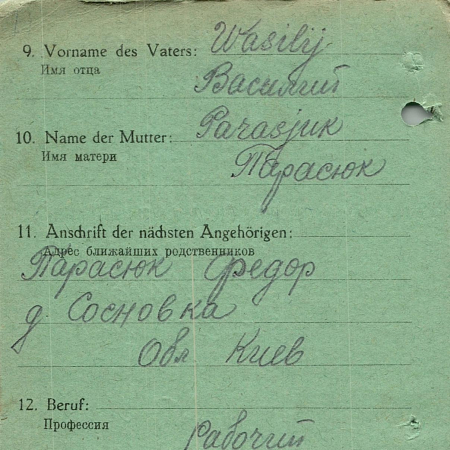 9. Vorname des Vaters: Wasilij
Имя отца
Василий
10. Name der Mutter: Parasjuk
Имя матери
Тарасюк
11. Anschrift der nächsten Angehörigen:
Адрес ближайших родственников
Тарасюк Федор
д. Сосновка
Обл Киев
12. Beruf:
Профессия
Рабочий